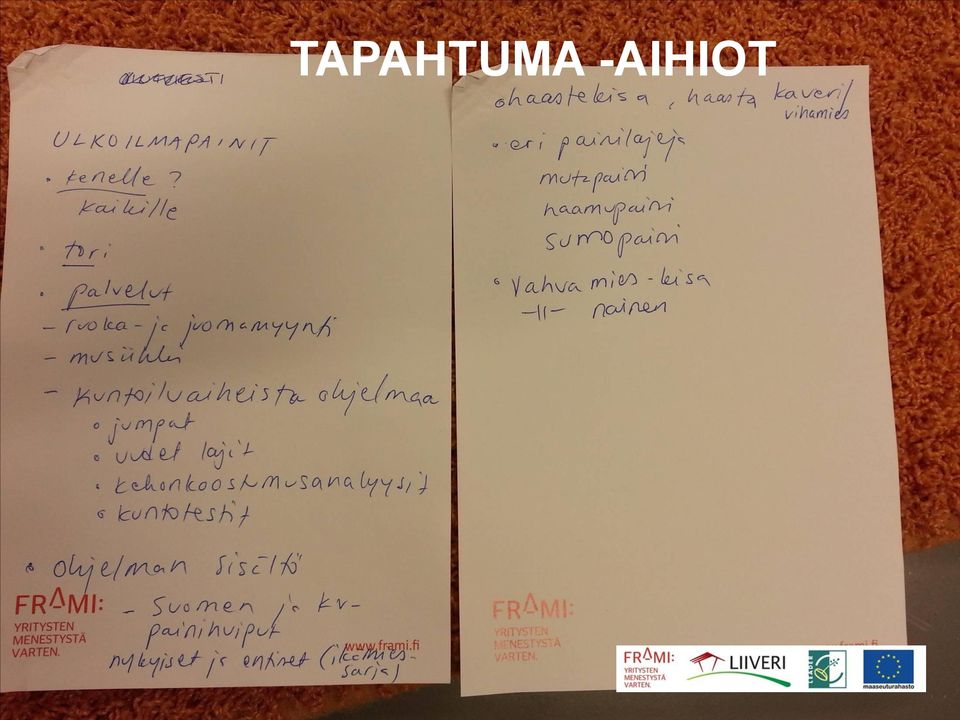 TAPAHTUMA -AIHIOT
ULKOILMAPAINIT
• kenelle?
kaikille
• tori
• palvelut
- ruoka- ja juomamyynti
- musiikki
- kuntoiluaiheista ohjelmaa
• jumpat
• uudet lajit
• kehonkoostumusanalyysit
• kuntotestit
• ohjelman sisältö
- Suomen ja kv-
painihuiput
nykyiset ja entiset (ikämies-
sarja)
FRAMI:
YRITYSTEN
MENESTYSTÄ
VARTEN.
www.frami.fi
• haastekisa, haasta kaveri/
vihamies
• eri painilajeja
mutapaini
naamupaini
sumopaini
• Vahva mies-kisa
-||- nainen
FRAMI:
YRITYSTEN
MENESTYSTÄ
VARTEN.
frami.fi
FRAMI:
YRITYSTEN
MENESTYSTÄ
VARTEN.
LIIVERI
LEADER
maaseuturahasto